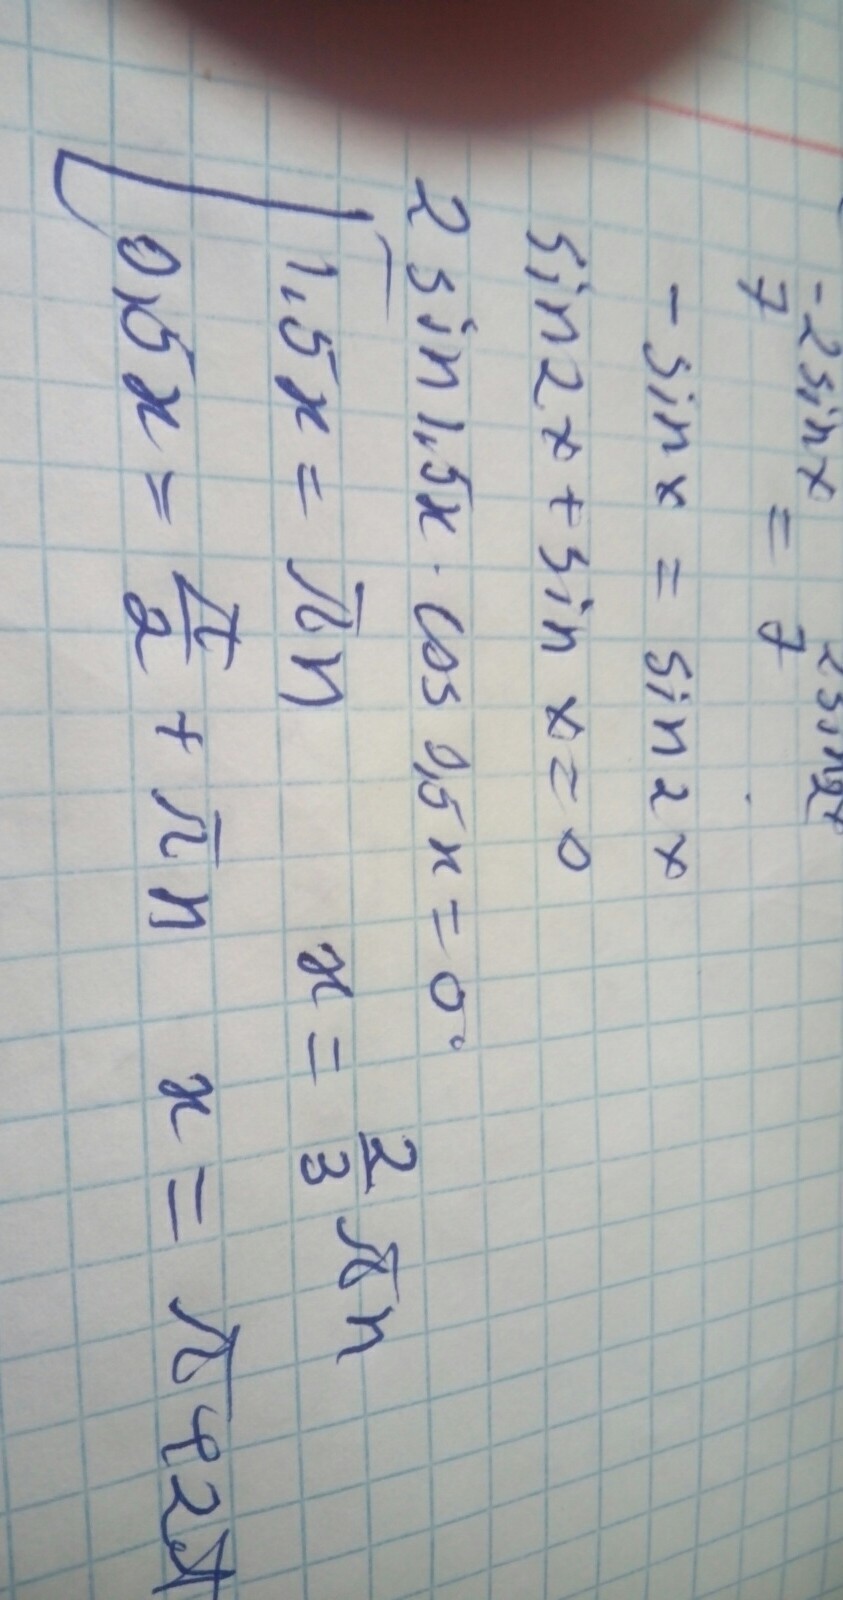 -2sinx 2sin2x
7 = 7
-sin x = sin 2x
sin2x + sin x = 0
2 sin 1,5x · cos 0,5x = 0
1,5x = πn x = 2/3 πn
0,5x = π/2 + πn x = π + 2π